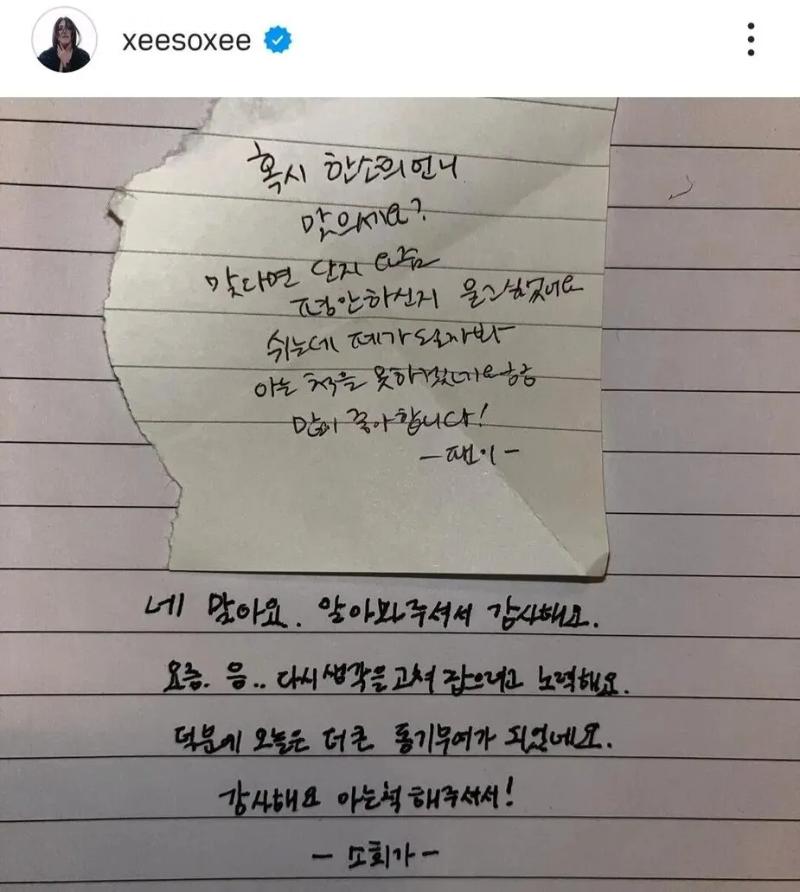 xeesoxee
혹시 한소희언니
맞으세요?
맞다면 단지 요즘
평안하신지 묻고싶었어요
쉬는데 폐가 될까봐
아는 척을
많이 좋아합니다!
-팬이-
네 맞아요. 알아봐주셔서 감사해요.
요즘. 음.. 다시 생각을 고쳐 잡으려고 노력해요.
덕분에 오늘은 더 큰 동기부여가 되었네요.
감사해요 아는척 해주셔서!
- 소희가 -